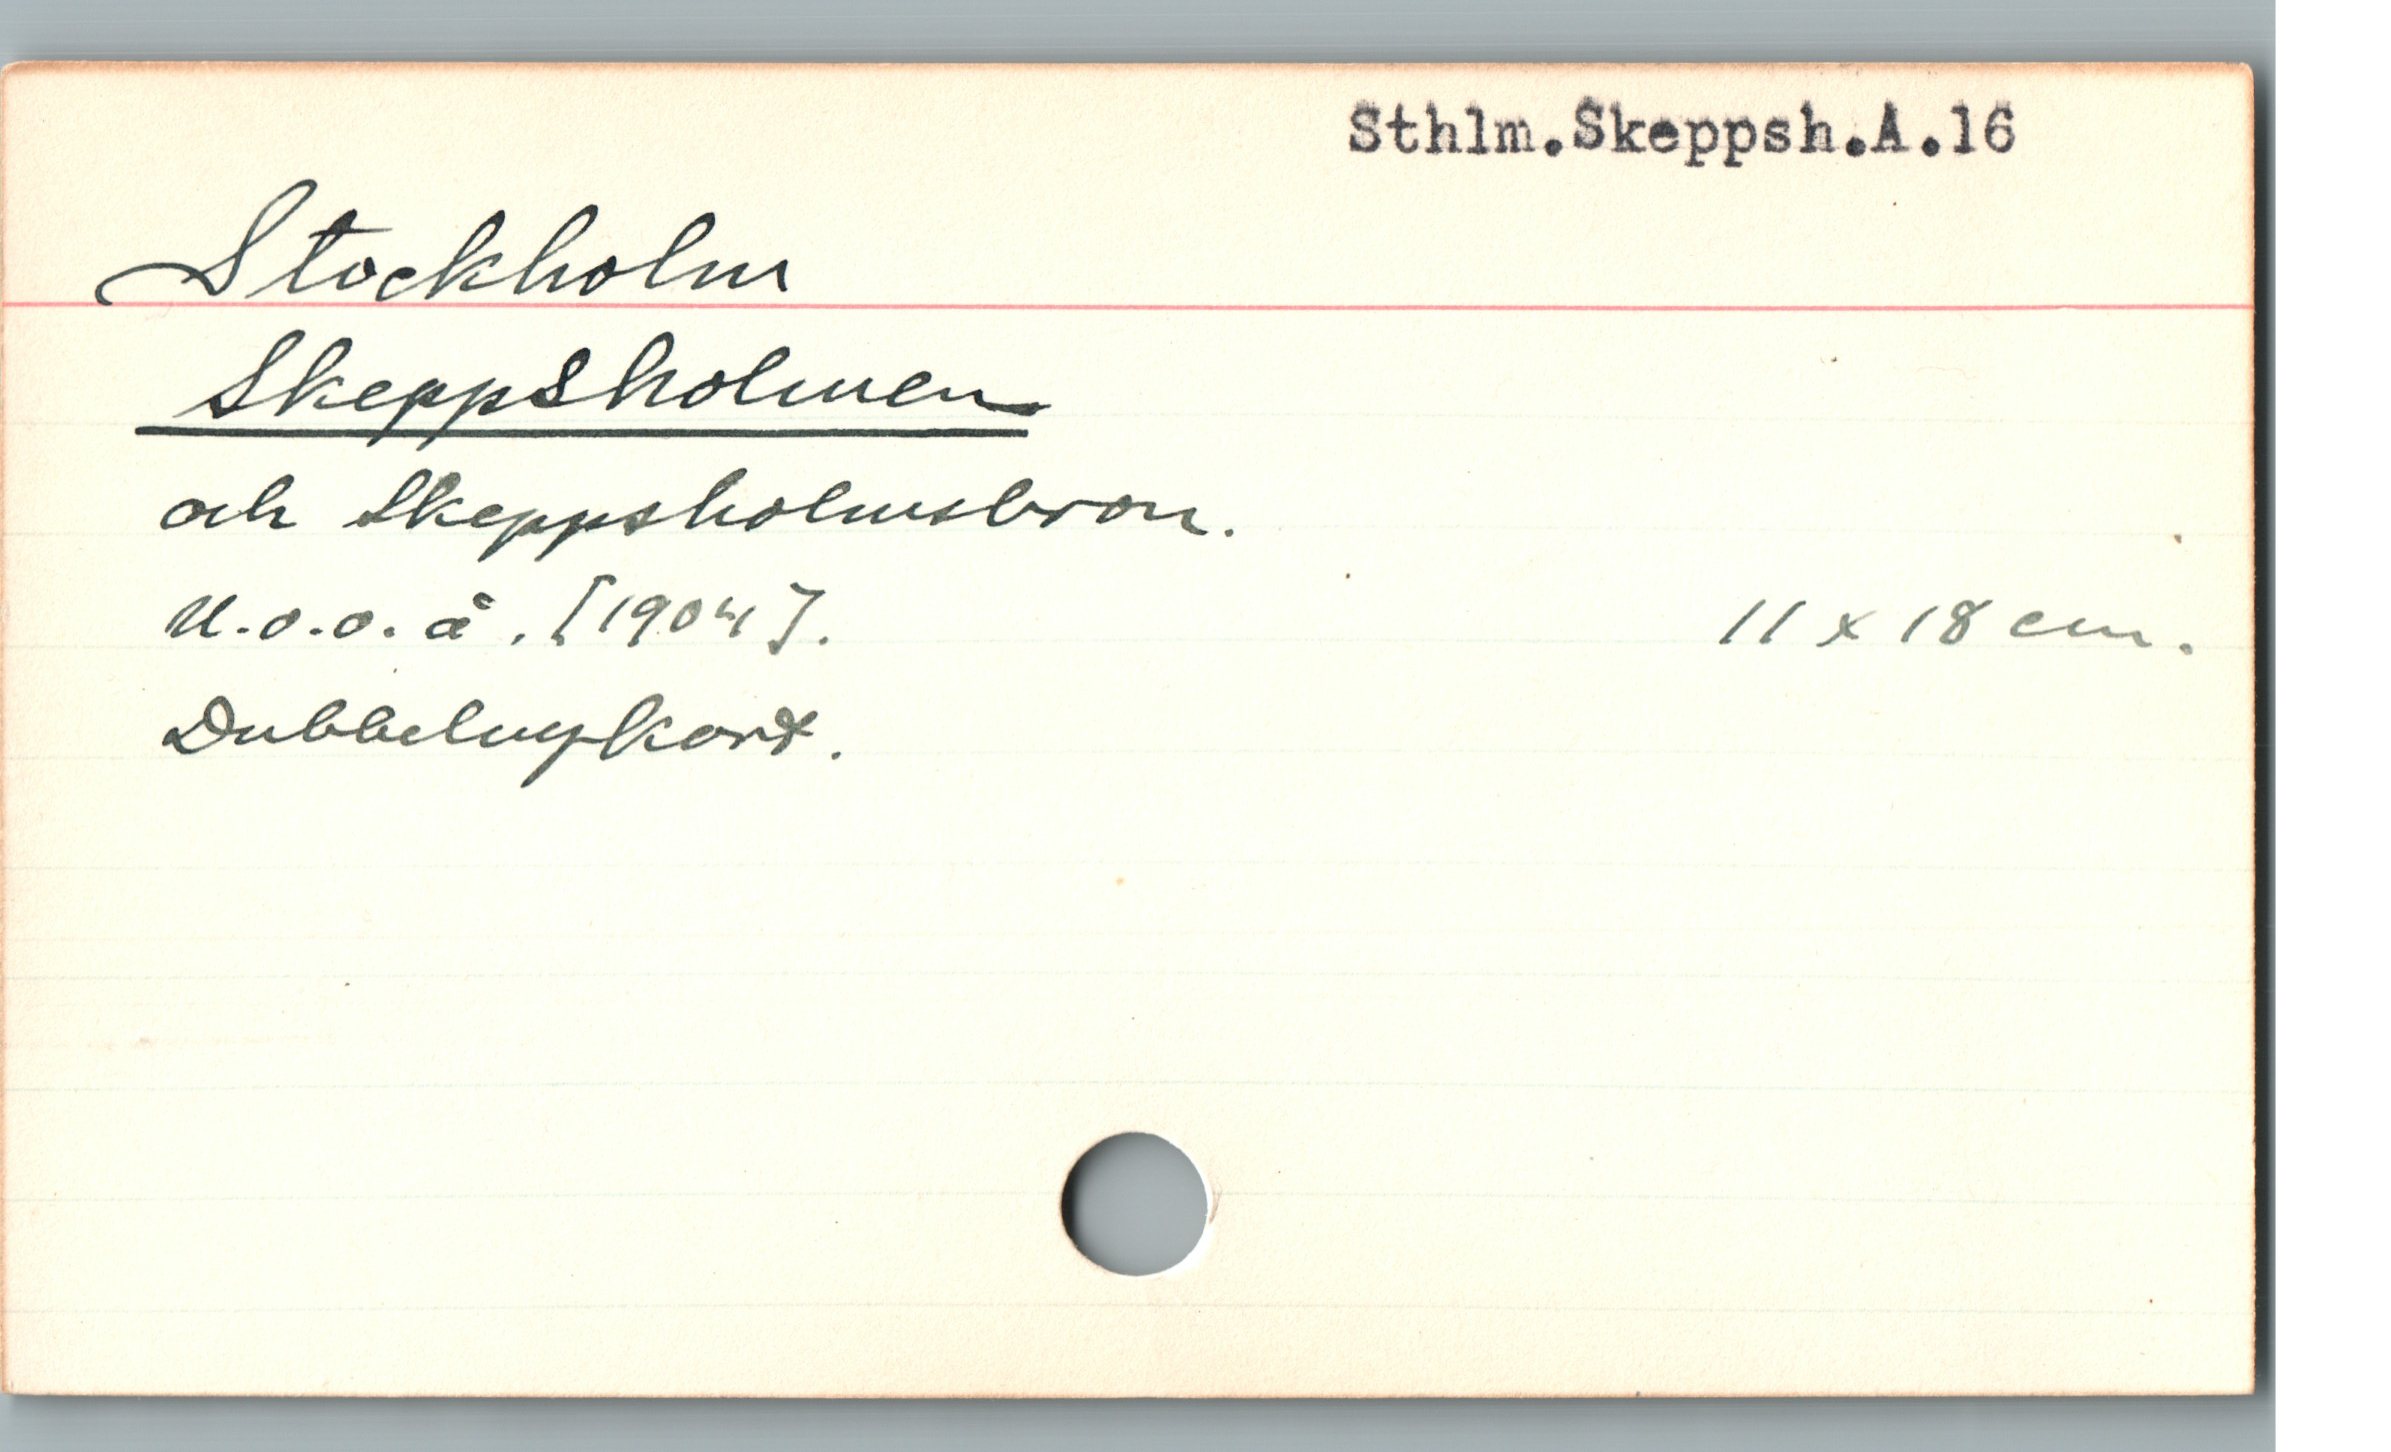 Sthlm.Skeppsh.A.16
Stockholm
Skeppsholmen
och Skeppsholmsbron.
U.o.o.å. [1904]. 11 x 18 cm.
Dubbelvykort.